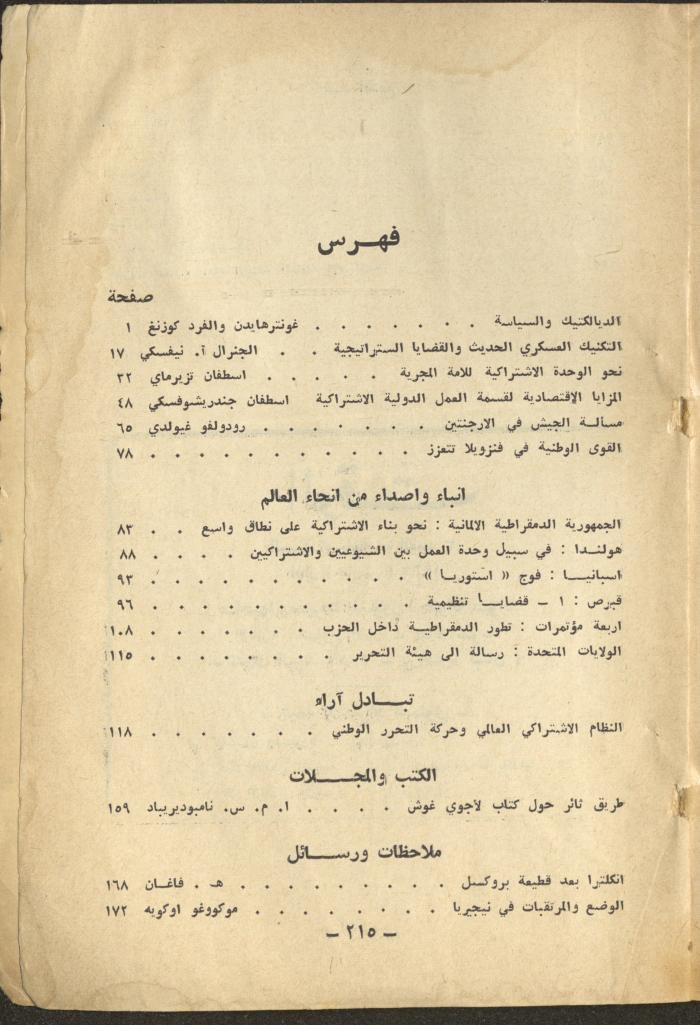 فهرس
صفحة
الديالكتيك والسياسة . . . . . . . غونترهايدن والفرد كوزنغ ١
التكنيك العسكري الحديث والقضايا الستراتيجية . . الجنرال آ. نيفسكي ١٧
نحو الوحدة الاشتراكية للامة المجرية . . . . . اسطفان تزيرماي ٣٢
المزايا الاقتصادية لقسمة العمل الدولية الاشتراكية اسطفان جندريشوفسكي ٤٨
مسألة الجيش في الارجنتين . . . . . . . رودولفو غيولدي ٦٥
القوى الوطنية في فنزويلا تتعزز . . . . . . . . . . . ٧٨
انباء واصداء من انحاء العالم
الجمهورية الدمقراطية الالمانية : نحو بناء الاشتراكية على نطاق واسع . . ٨٣
هولندا : في سبيل وحدة العمل بين الشيوعيين والاشتراكيين . . . . ٨٨
اسبانيا : فوج « استوريا » . . . . . . . . . . . ٩٣
قبرص : ١ – قضايا تنظيمية . . . . . . . . . . . ٩٦
اربعة مؤتمرات : تطور الدمقراطية داخل الحزب . . . . . . . ١٠٨
الولايات المتحدة : رسالة الى هيئة التحرير . . . . . . . . ١١٥
تبادل آراء
النظام الاشتراكي العالمي وحركة التحرر الوطني . . . . . . . ١١٨
الكتب والمجلات
طريق ثائر حول كتاب لآجوي غوش . . . . ا. م. س. نامبوديريباد ١٥٩
ملاحظات ورسائل
انكلترا بعد قطيعة بروكسل . . . . . . . . . هـ . فاغان ١٦٨
الوضع والمرتقبات في نيجيريا . . . . . . . . موكووغو اوكويه ١٧٢
– ٢١٥ –